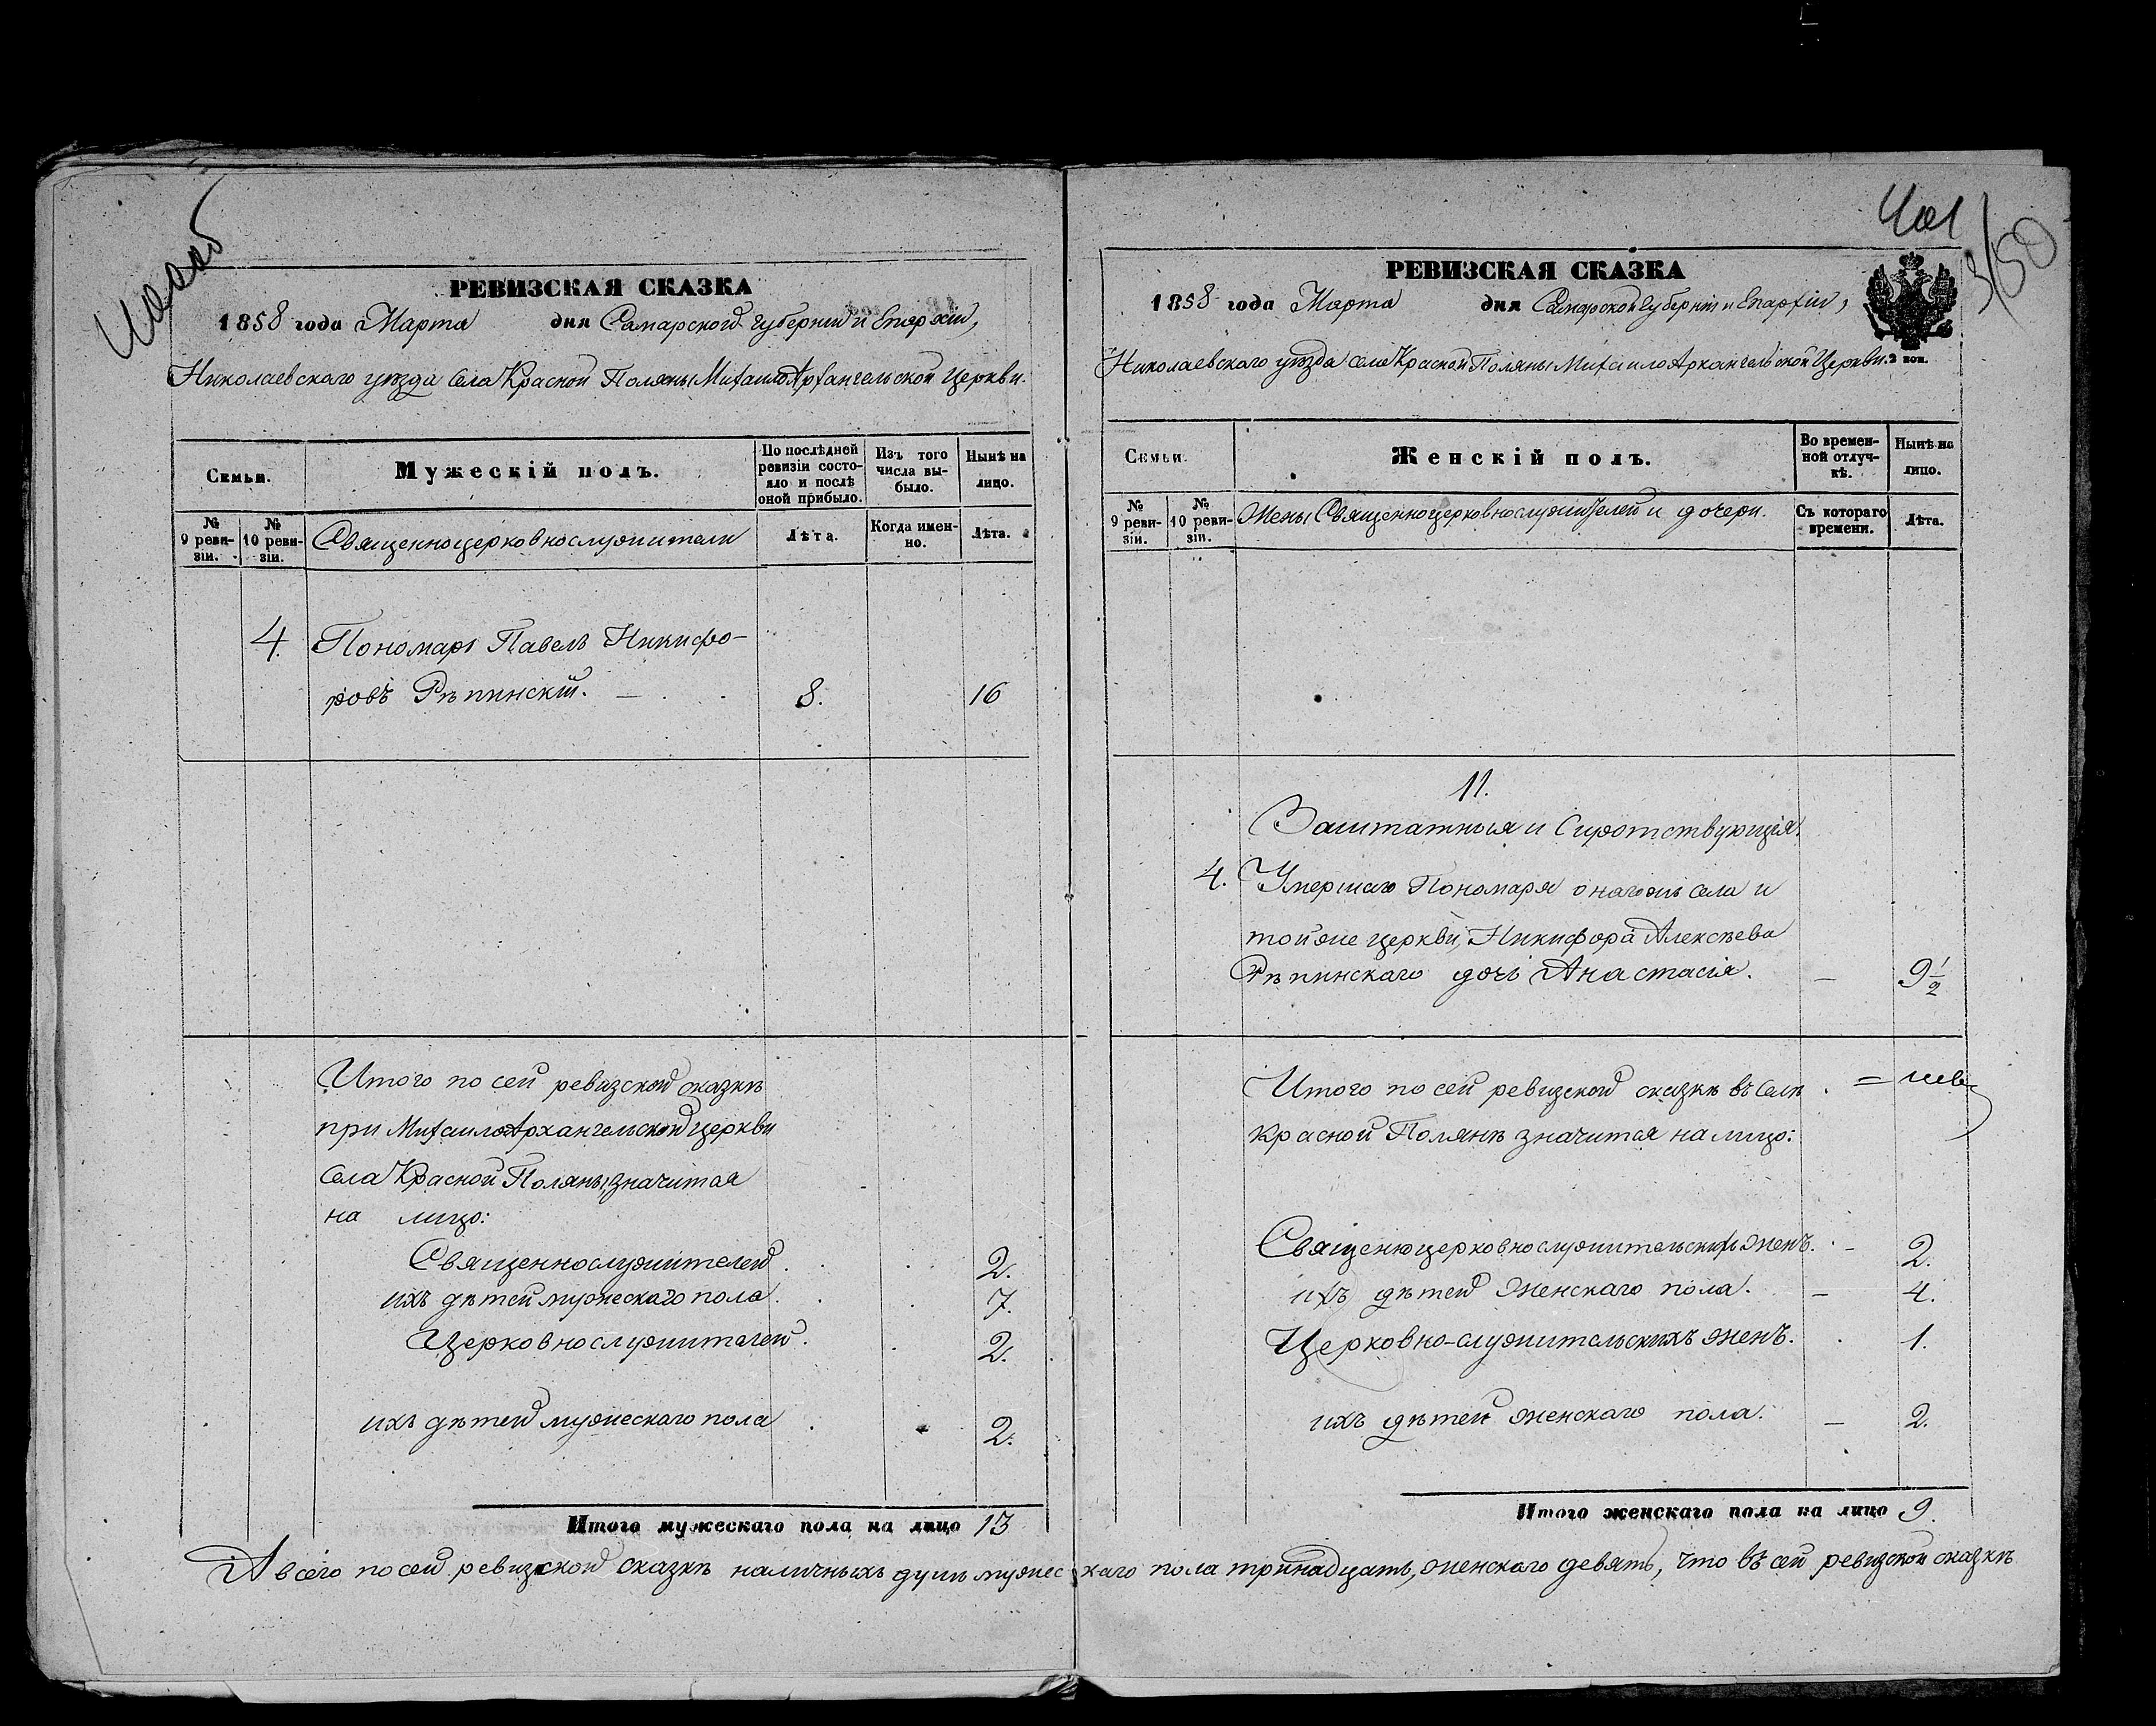 РЕВИЗСКАЯ СКАЗКА
1858 года Марта дня Самарской губернiи и Епархiи,
Николаевскаго уѣзда Села Красной Поляны Михаило Архангельской Церкви.
Семьи.
Мужескiй полъ.
По послѣдней ревизiи состояло и послѣ оной прибыло.
Изъ того числа выбыло.
Нынѣ на лицо.
№ 9 ревизiи.
№ 10 ревизiи.
Священноцерковнослужители
Лѣта.
Когда именно.
Лѣта.
4. Пономарь Павелъ Никифо-
ровъ Рѣпинскiй. 8. 16
Итого по сей ревизской сказкѣ
при Михаило Архангельской церкви
Села Красной Поляны, значится
на лицо:
Священнослужителей. 2.
ихъ дѣтей мужескаго пола. 7.
Церковнослужителей. 2.
ихъ дѣтей мужескаго пола 2.
Итого мужескаго пола на лицо 13
401
350
РЕВИЗСКАЯ СКАЗКА
1858 года Марта дня Самарской Губернiи и Епархiи,
Николаевскаго уѣзда села Красной Поляны Михаило Архангельской Церкви.
2 коп.
Семьи.
Женскiй полъ.
Во временной отлучкѣ.
Нынѣ на лицо.
№ 9 ревизiи.
№ 10 ревизiи.
Жены Священноцерковнослужителей и дочери.
Съ котораго времени.
Лѣта.
11.
Заштатныя и Сиротствующiя.
4. Умершаго Пономаря онагожъ села и
тойже церкви, Никифора Алексѣева
Рѣпинскаго дочь Анастасiя. — 9 1/2
Итого по сей ревизской сказкѣ въ селѣ
Красной Полянѣ значится на лицо:
Священноцерковнослужительскихъ женъ. — 2.
ихъ дѣтей женскаго пола. — 4.
Церковно-служительскихъ женъ. 1.
ихъ дѣтей женскаго пола. — 2.
Итого женскаго пола на лицо 9.
А всего по сей ревизской сказкѣ наличныхъ душъ мужескаго пола тринадцать, женскаго девять, что въ сей ревизской сказкѣ